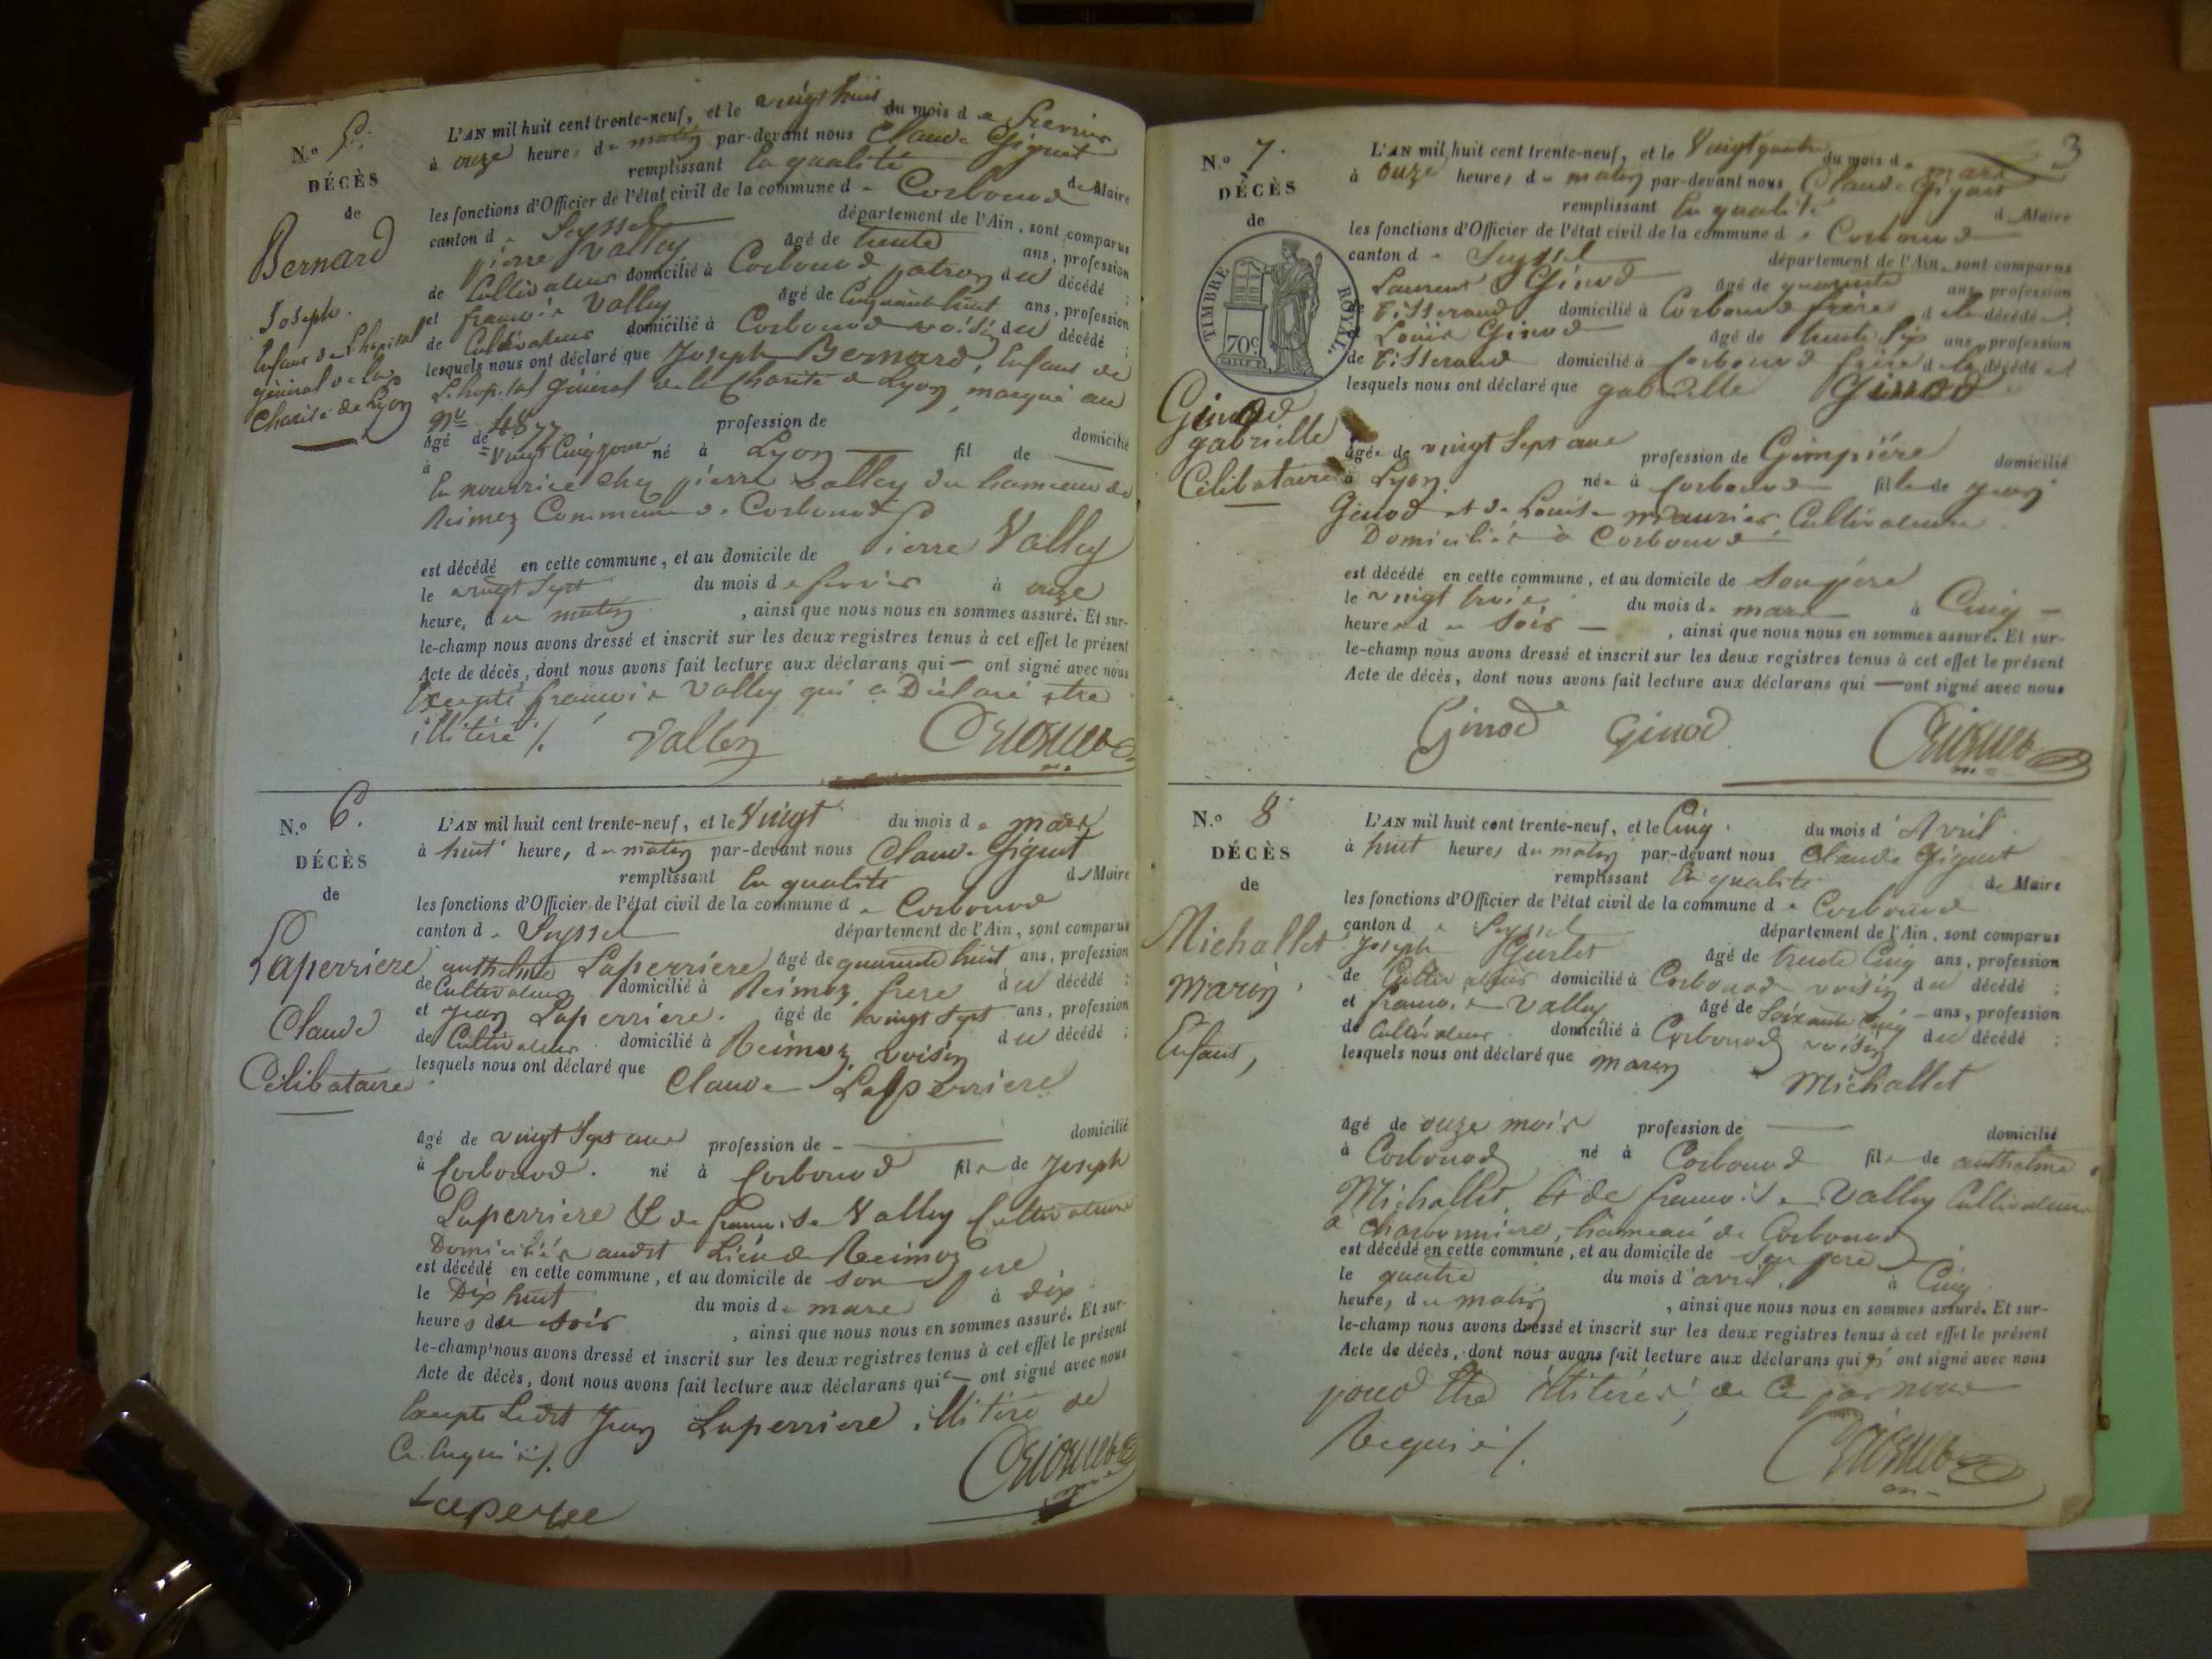 N.o 5.
DÉCÈS
de
Bernard
Joseph.
Enfant de L'hopital
général de la
Charité de Lyon
L'AN mil huit cent trente-neuf, et le vingt huit du mois de fevrier
à onze heures du matin par-devant nous Claude Giguet
remplissant en qualité de Maire
les fonctions d'Officier de l'état civil de la commune de Corbonod
canton de Seyssel département de l'Ain, sont comparus
pierre Valley âgé de trente ans, profession
de Cultivateur domicilié à Corbonod patron du décédé ;
et françois Valley âgé de Cinquante huit ans, profession
de Cultivateur domicilié à Corbonod voisin du décédé ;
lesquels nous ont déclaré que Joseph Bernard, Enfant de
L'hopital général de la Charité de Lyon, marqué au
No 4877 profession de domicilié
âgé de vingt Cinq jours né à Lyon fil de
à
En nourrice chez pierre Valley du hameau de
Reimoz Commune de Corbonod
est décédé en cette commune, et au domicile de Pierre Valley
le vingt Sept du mois de fevrier à onze
heure, du matin, ainsi que nous nous en sommes assuré. Et sur-
le-champ nous avons dressé et inscrit sur les deux registres tenus à cet effet le présent
Acte de décès, dont nous avons fait lecture aux déclarans qui — ont signé avec nous
Excepté françois Valley qui a Déclaré etre
illitéré /. Valley
N.o 6.
DÉCÈS
de
Laperriere
Claude
Célibataire
L'AN mil huit cent trente-neuf, et le Vingt du mois de mars
à huit heure, du matin par-devant nous Claude Giguet
remplissant En qualité de Maire
les fonctions d'Officier de l'état civil de la commune de Corbonod
canton de Seyssel département de l'Ain, sont comparus
anthelme Laperriere âgé de quarante huit ans, profession
de Cultivateur domicilié à Reimoz frere du décédé ;
et Jean Laperriere. âgé de vingt sept ans, profession
de Cultivateur domicilié à Reimoz voisin du décédé ;
lesquels nous ont déclaré que Claude Laperriere
âgé de vingt Sept ans profession de — domicilié
à Corbonod. né à Corbonod fils de Joseph
Laperriere & de françoise Valley Cultivateurs
Domiciliés audit Lieu de Reimoz
est décédé en cette commune, et au domicile de son pere
le Dix huit du mois de mars à dix
heures du soir, ainsi que nous nous en sommes assuré. Et sur-
le-champ nous avons dressé et inscrit sur les deux registres tenus à cet effet le présent
Acte de décès, dont nous avons fait lecture aux déclarans qui — ont signé avec nous
Excepté Ledit Jean Laperriere illitéré de
Ce Enquis /.
3
N.o 7.
DÉCÈS
de
TIMBRE ROYAL.
70c
Ginod
gabrielle
Célibataire
L'AN mil huit cent trente-neuf, et le Vingt quatre du mois de mars
à onze heures du matin par-devant nous Claude Giguet
remplissant En qualité de Maire
les fonctions d'Officier de l'état civil de la commune de Corbonod
canton de Seyssel département de l'Ain, sont comparus
Laurent Ginod âgé de quarante ans, profession
Tisserand domicilié à Corbonod frère de la décédée ;
Louis Ginod âgé de trente Six ans, profession
de Tisserand domicilié à Corbonod frère de la décédée ;
lesquels nous ont déclaré que gabrielle Ginod
âgée de vingt Sept ans profession de Gimpière domicilié
à Lyon née à Corbonod fille de Jean
Ginod et de Louise maurier Cultivateurs
Domiciliés à Corbonod
est décédé en cette commune, et au domicile de Son père
le vingt trois du mois de mars à Cinq —
heures du Soir —, ainsi que nous nous en sommes assuré. Et sur-
le-champ nous avons dressé et inscrit sur les deux registres tenus à cet effet le présent
Acte de décès, dont nous avons fait lecture aux déclarans qui — ont signé avec nous
Ginod Ginod
N.o 8.
DÉCÈS
de
Michallet
Marin,
Enfant,
L'AN mil huit cent trente-neuf, et le Cinq. du mois d'Avril
à huit heures du matin par-devant nous Claude Giguet
remplissant En qualité de Maire
les fonctions d'Officier de l'état civil de la commune de Corbonod
canton de Seyssel département de l'Ain, sont comparus
Joseph Gurlet âgé de trente Cinq ans, profession
de Cultivateur domicilié à Corbonod voisin du décédé ;
et françois Valley âgé de Soixante Cinq ans, profession
de Cultivateur domicilié à Corbonod voisin du décédé ;
lesquels nous ont déclaré que marin Michallet
âgé de onze mois profession de — domicilié
à Corbonod né à Corbonod fils de anthelme
Michallet & de françoise Valley Cultivateurs
à Charbonniere, hameau de Corbonod
est décédé en cette commune, et au domicile de Son pere
le quatre du mois d'avril à Cinq
heure, du matin, ainsi que nous nous en sommes assuré. Et sur-
le-champ nous avons dressé et inscrit sur les deux registres tenus à cet effet le présent
Acte de décès, dont nous avons fait lecture aux déclarans qui n' ont signé avec nous
pour être illitérés, de Ce par nous
Requis /.